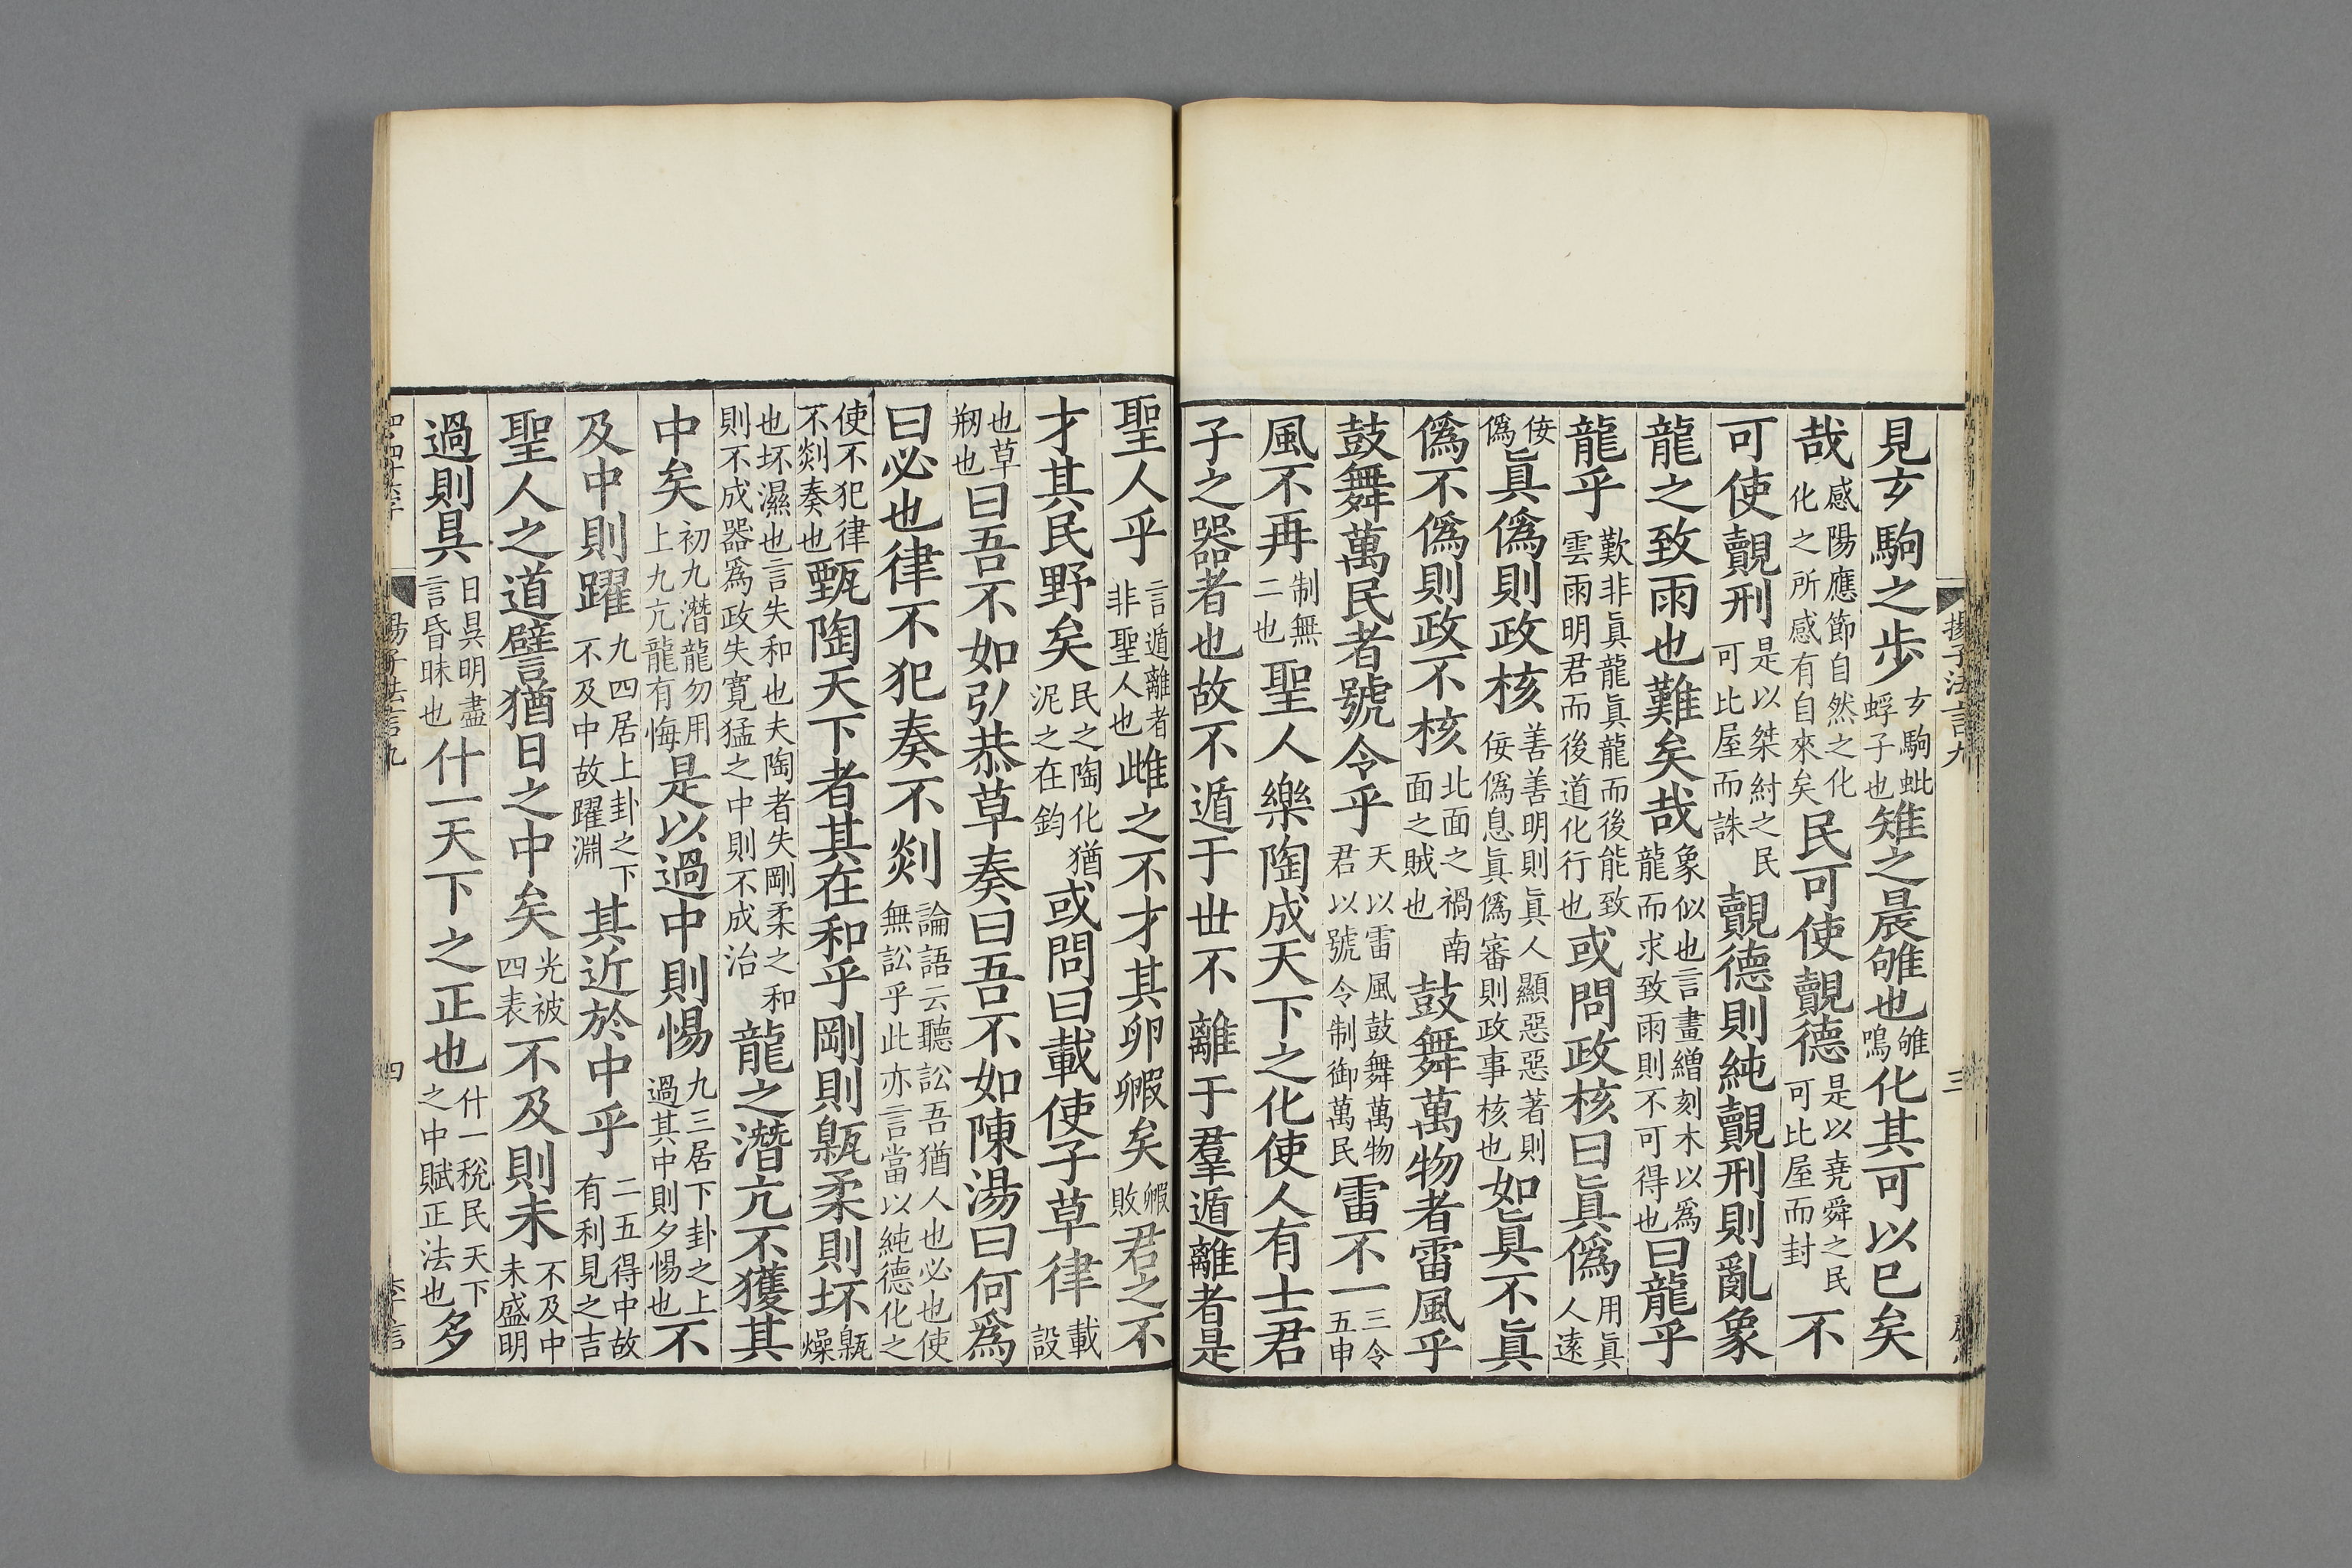 見玄駒之步玄駒蚍蜉子也雉之晨雊也雊鳴化其可以已矣
哉感陽應節自然之化化之所感有自來矣民可使覿德是以堯舜之民可比屋而封不
可使覿刑是以桀紂之民可比屋而誅覿德則純覿刑則亂象
龍之致雨也難矣哉象似也言畫繒刻木以爲龍而求致雨則不可得也曰龍乎
龍乎歎非眞龍眞龍而後能致雲雨明君而後道化行也或問政核曰眞僞用眞人遠
佞僞眞僞則政核善善明則眞人顯惡惡著則佞僞息眞僞審則政事核也如眞不眞
僞不僞則政不核北面之禍南面之賊也鼓舞萬物者雷風乎
鼓舞萬民者號令乎天以雷風鼓舞萬物君以號令制御萬民雷不一三令五申
風不再制無二也聖人樂陶成天下之化使人有士君
子之器者也故不遁于世不離于羣遁離者是
揚子法言九
三
聖人乎言遁離者非聖人也雌之不才其卵毈矣毈敗君之不
才其民野矣民之陶化猶泥之在鈞或問曰載使子草律載設
也草刱也曰吾不如弘恭草奏曰吾不如陳湯曰何爲
曰必也律不犯奏不剡論語云聽訟吾猶人也必也使無訟乎此亦言當以純德化之
使不犯律不剡奏也甄陶天下者其在和乎剛則甈柔則坏甈燥
也坏濕也言失和也夫陶者失剛柔之和則不成器爲政失寬猛之中則不成治龍之潛亢不獲其
中矣初九潛龍勿用上九亢龍有悔是以過中則惕九三居下卦之上過其中則夕惕也不
及中則躍九四居上卦之下不及中故躍淵其近於中乎二五得中故有利見之吉
聖人之道譬猶日之中矣光被四表不及則未不及中未盛明
過則昃日昃明盡言昏昧也什一天下之正也什一稅民天下之中賦正法也多
揚子法言九
四